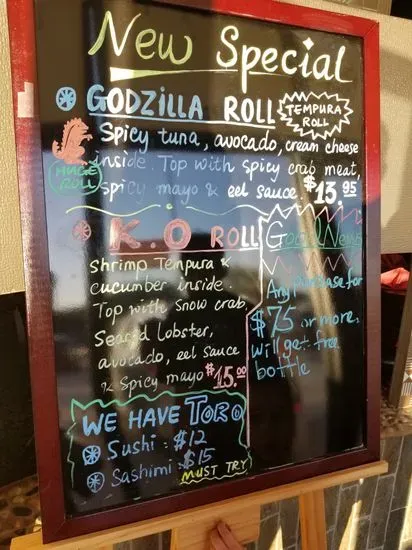 New Special
GODZILLA ROLL
TEMPURA
ROLL
Spicy tuna, avocado, cream cheese
inside. Top with spicy crab meat,
spicy mayo & eel sauce. $13.95
HUGE
ROLL
K.O ROLL
Shrimp Tempura &
cucumber inside.
Top with snow crab,
Seared lobster,
avocado, eel sauce
& Spicy mayo $15.00
Good News
Any purchase for
$75 or more,
will get free
bottle
WE HAVE TORO
Sushi: $12
Sashimi: $15
MUST TRY